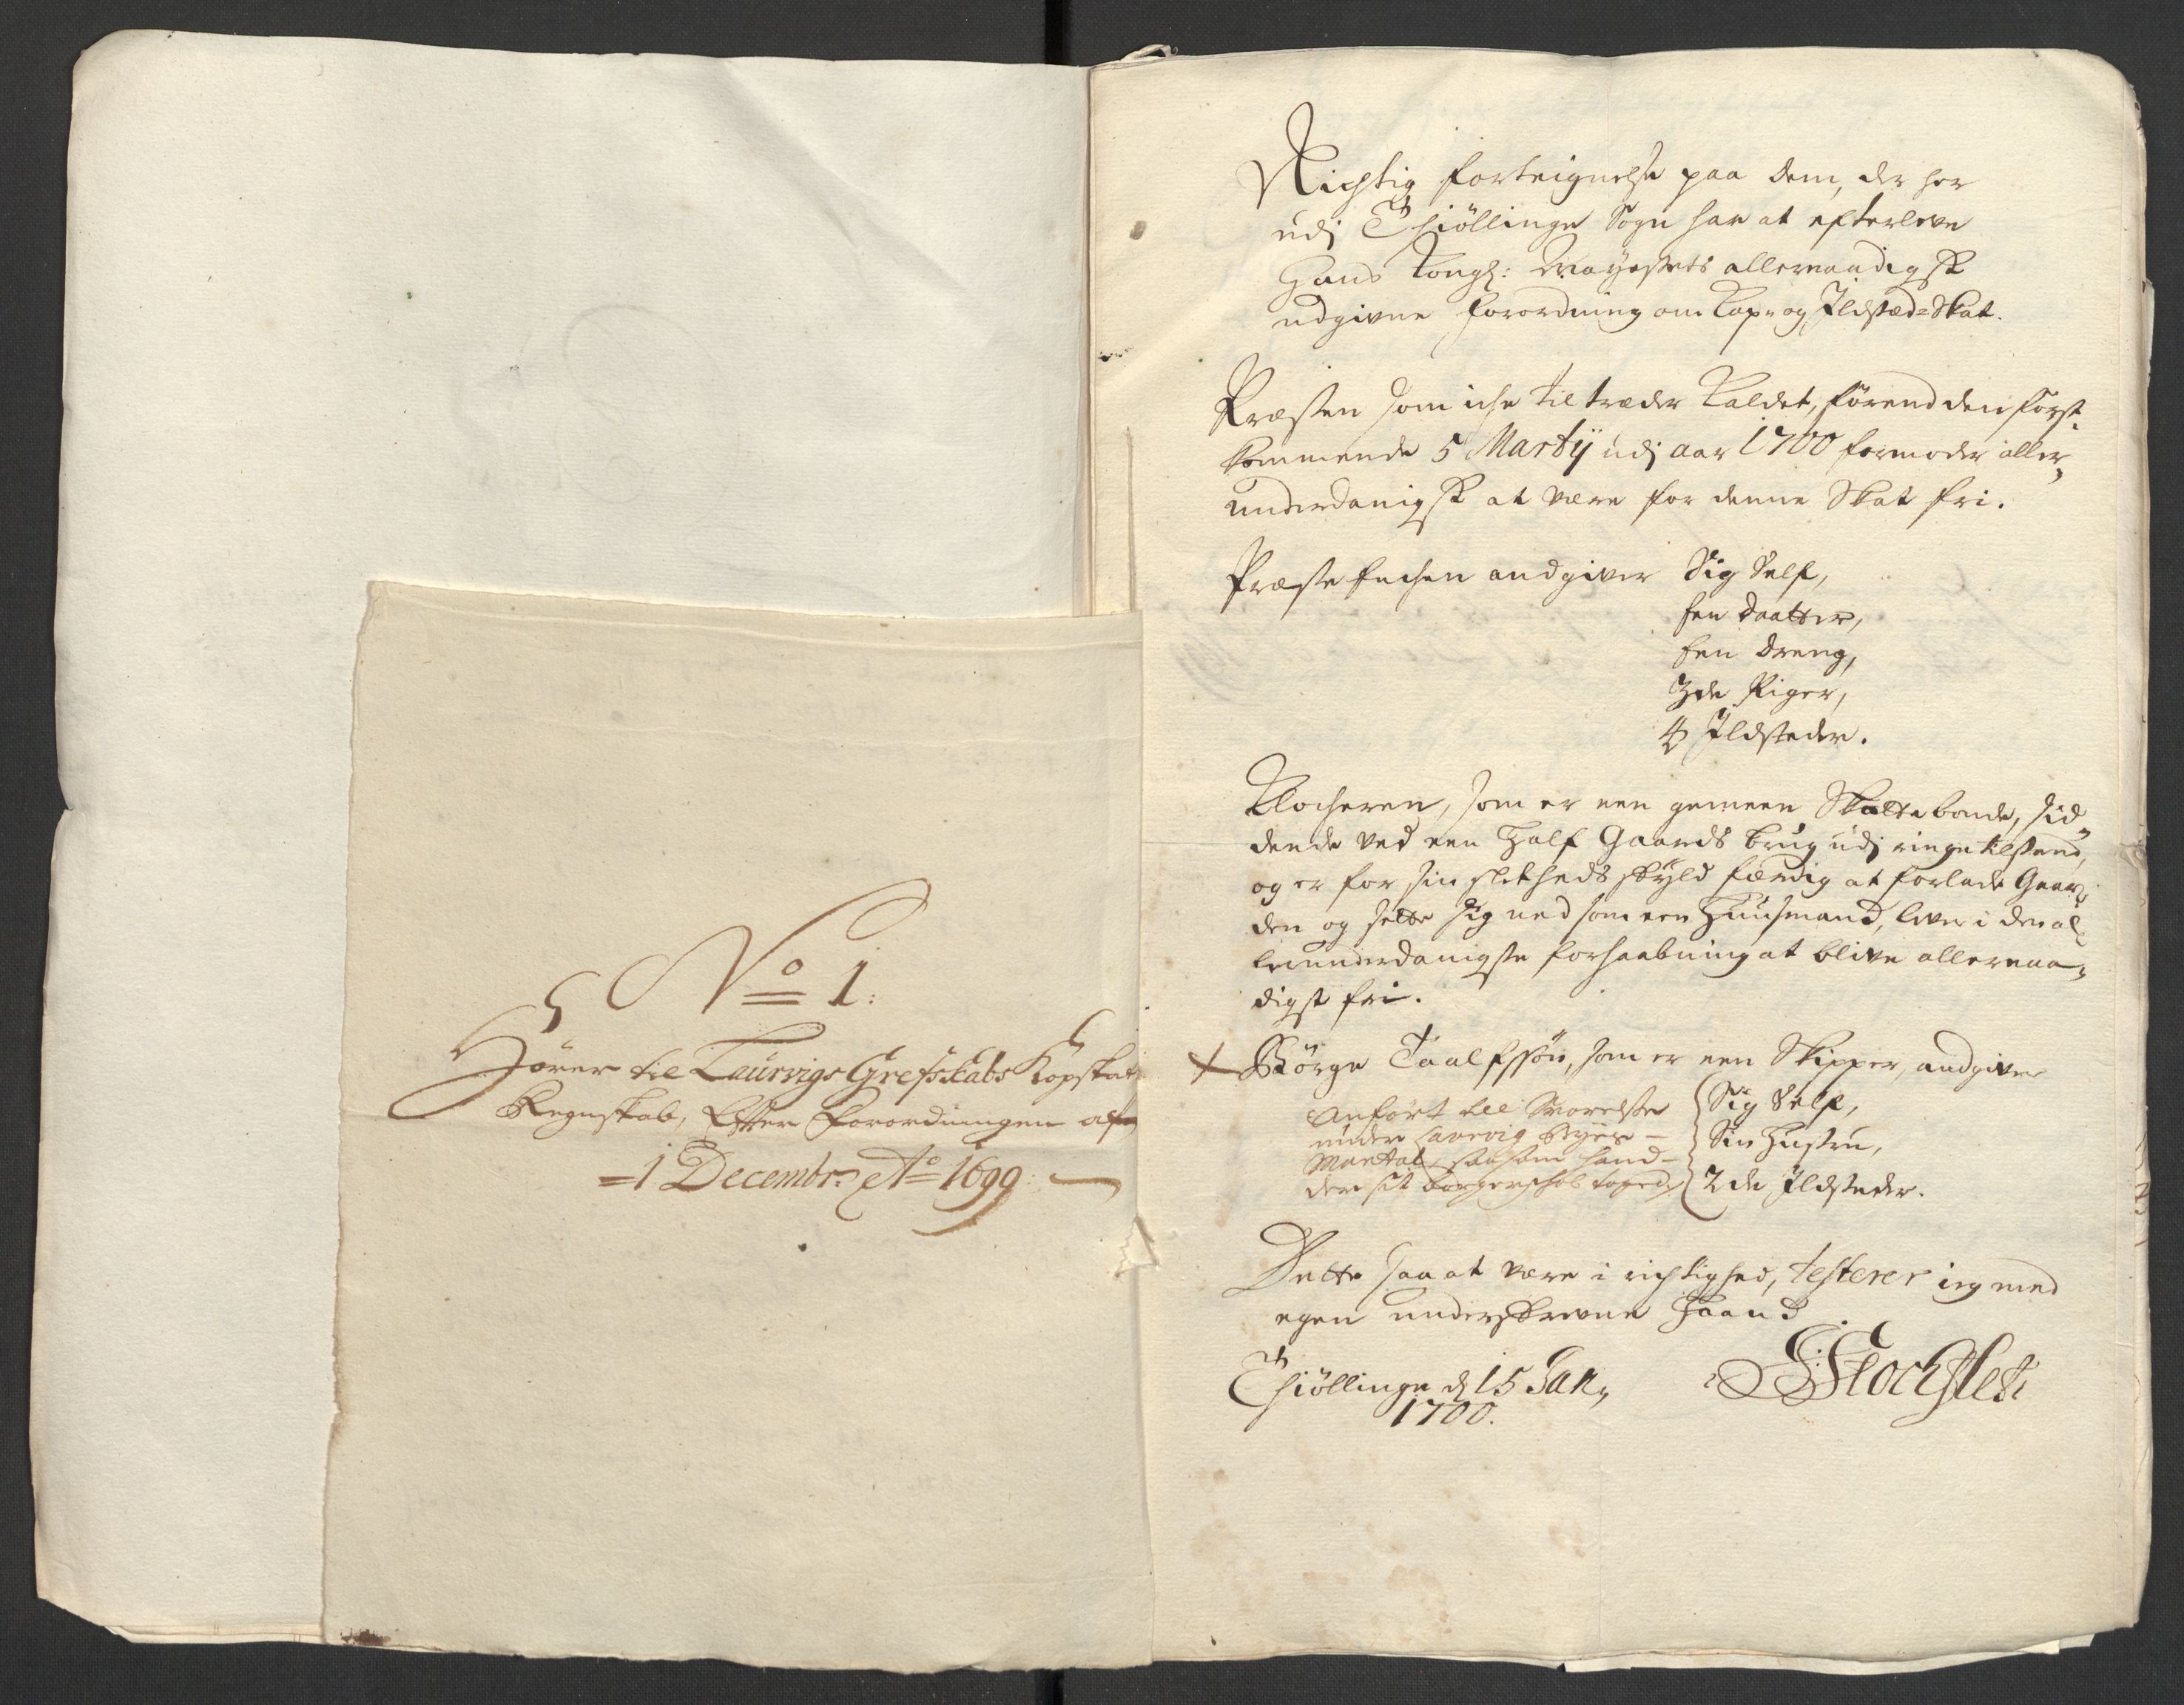 No 1.
Hörer til Laurvigs Grefskabs Kopskats
Regnskab, Efter Forordningen af
1 Decembr: Ao 1699
Richtig forteignelse paa dem, der her
udj Thiöllinge Sogn har at efterleve
Hans Kongl: Mayestets allernaadigst
udgivne forordning om Kop- og Ildsted-Skat.
Præsten som iche tiltræder Kaldet, förend den först-
kommende 5 Martij udj aar 1700 formoder aller-
underdanigst at være for denne Skat fri.
Præste Enchen andgiver Sig Self,
Een Daatter,
Een Dreng,
2de Piger,
4 Ildsteder.
Klocheren, som er een gemeen Skattebonde, sid-
dende ved een Half Gaards brug udj ringe tilstand,
og er for sin sletheds skyld færdig at forlade Gaar-
den og sette sig ned som een Huusmand, lever i den al-
lerunderdanigste forhaabning at blive allernaa-
digst fri.
Börge Taalfssön, som er een Skipper, andgiver
Anfört till
under Laurvig Byes
Mantal, saasom hand
der sit borgerschab toged
Sig Self,
Sin Hustru,
2de Ildsteder.
Dette saa at være i richtighed, testerer ieg med
egen underskrevne Haand
Thiöllinge d 15 Jan,
1700.
Stochflet